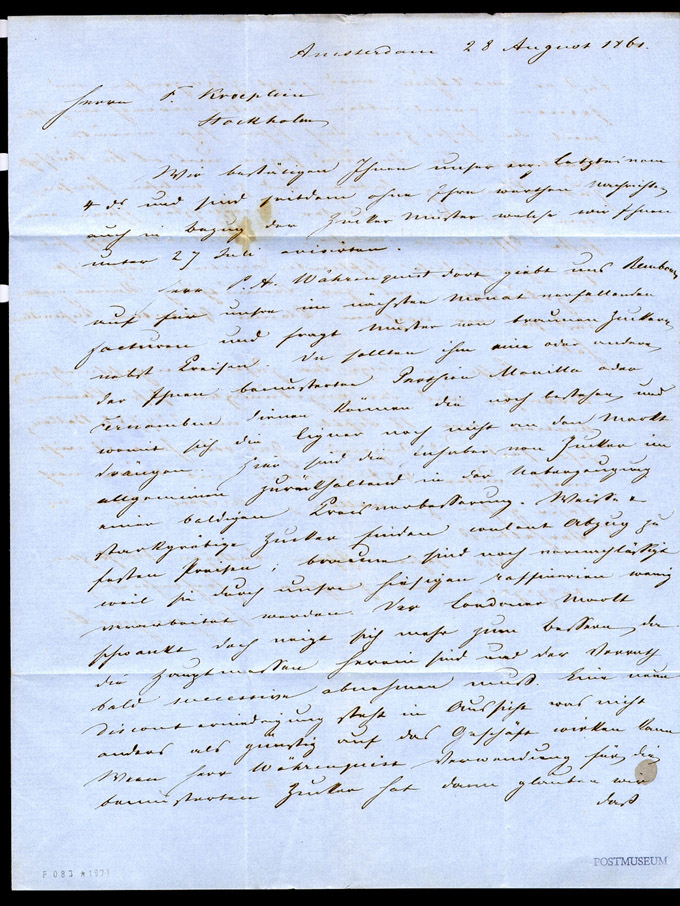 Amsterdam 28 August 1861.
Herrn F. Kroeplin
Stockholm
Wir bestätigen Ihnen unser erg. letztes vom
4 ds und sind seitdem ohne Ihre werthen Nachrichten
auch in bezug der Zucker Muster welche wir Ihnen
unter 27 Juli avisirten.
Herr P. A. Währenquist dort giebt uns Rembours
auf für unsre im nächsten Monat verfallenden
facturen und fragt Muster von braunen Zuckern
nebst Preisen. Da sollten ihm eine oder andere
der Ihnen bemusterten Parthien Manilla oder
Fernambuc dienen können die noch bestehen und
womit sich die Eigner noch nicht an den Markt
drängen. Hier sind die Inhaber von Zucker im
allgemeinen zurückhaltend in der Ueberzeugung
einer baldigen Preisverbesserung. Weisse &
starkgräbige Zucker finden coulant Abzug zu
festen Preisen; braune sind noch vernachlässigt
weil sie durch unsre hiesigen raffinerien wenig
verarbeitet werden. Der Londoner Markt
schwankt doch neigt sich mehr zum bessern, da
die Hauptmassen herein sind und der Vorrath
bald successive abnehmen muß. Eine neue
Discont erniedrigung steht in Aussicht was nicht
anders als günstig auf das Geschäft wirken kann
Wenn Herr Währenquist Verwendung für die
bemusterten Zucker hat dann glauben wir
daß
POSTMUSEUM
F 083 * 1971